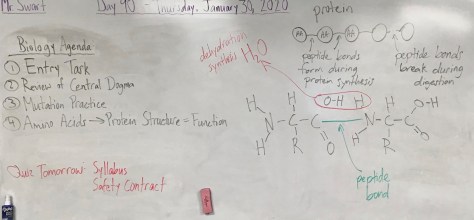 Mr Swart
Day 90 - Thursday, January 30, 2020
Biology Agenda
1 Entry Task
2 Review of Central Dogma
3 Mutation Practice
4 Amino Acids → Protein Structure = Function
Quiz Tomorrow: Syllabus
Safety Contract
protein
AA AA
peptide bonds
form during
protein synthesis
peptide bonds
break during
digestion
dehydration
synthesis
H₂O
H H O-H H H O-H
N-C-C N-C-C
H R O H R O
peptide
bond